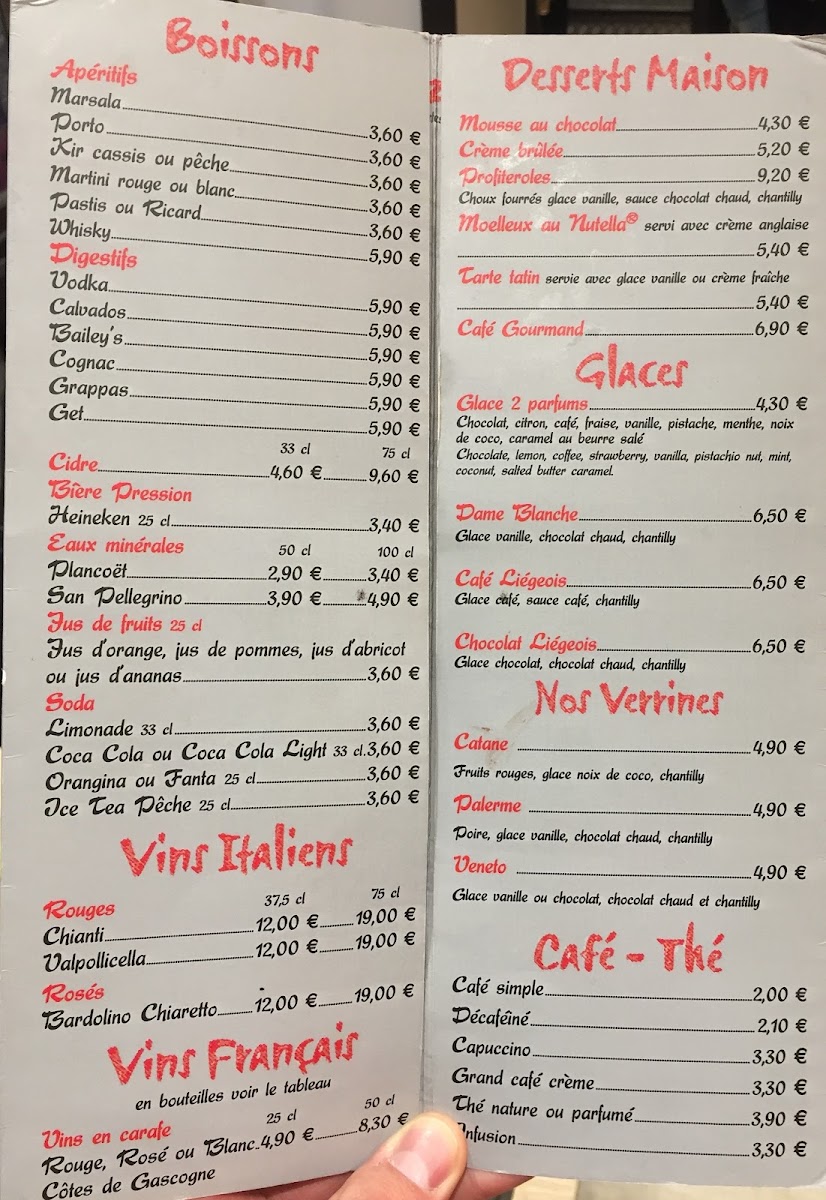 Boissons
Apéritifs
Marsala 3,60 €
Porto 3,60 €
Kir cassis ou pêche 3,60 €
Martini rouge ou blanc 3,60 €
Pastis ou Ricard 3,60 €
Whisky 5,90 €
Digestifs
Vodka 5,90 €
Calvados 5,90 €
Bailey's 5,90 €
Cognac 5,90 €
Grappas 5,90 €
Get 5,90 €
33 cl 75 cl
Cidre 4,60 € 9,60 €
Bière Pression
Heineken 25 cl 3,40 €
Eaux minérales 50 cl 100 cl
Plancoët 2,90 € 3,40 €
San Pellegrino 3,90 € 4,90 €
Jus de fruits 25 cl
Jus d'orange, jus de pommes, jus d'abricot
ou jus d'ananas 3,60 €
Soda
Limonade 33 cl 3,60 €
Coca Cola ou Coca Cola Light 33 cl. 3,60 €
Orangina ou Fanta 25 cl 3,60 €
Ice Tea Pêche 25 cl 3,60 €
Vins Italiens
Rouges 37,5 cl 75 cl
Chianti 12,00 € 19,00 €
Valpollicella 12,00 € 19,00 €
Rosés
Bardolino Chiaretto 12,00 € 19,00 €
Vins Français
en bouteilles voir le tableau
Vins en carafe 25 cl 50 cl
Rouge, Rosé ou Blanc 4,90 € 8,30 €
Côtes de Gascogne
Desserts Maison
Mousse au chocolat 4,30 €
Crème brûlée 5,20 €
Profiteroles 9,20 €
Choux fourrés glace vanille, sauce chocolat chaud, chantilly
Moelleux au Nutella® servi avec crème anglaise
5,40 €
Tarte tatin servie avec glace vanille ou crème fraîche
5,40 €
Café Gourmand 6,90 €
Glaces
Glace 2 parfums 4,30 €
Chocolat, citron, café, fraise, vanille, pistache, menthe, noix
de coco, caramel au beurre salé
Chocolate, lemon, coffee, strawberry, vanilla, pistachio nut, mint,
coconut, salted butter caramel.
Dame Blanche 6,50 €
Glace vanille, chocolat chaud, chantilly
Café Liégeois 6,50 €
Glace café, sauce café, chantilly
Chocolat Liégeois 6,50 €
Glace chocolat, chocolat chaud, chantilly
Nos Verrines
Catane 4,90 €
Fruits rouges, glace noix de coco, chantilly
Palerme 4,90 €
Poire, glace vanille, chocolat chaud, chantilly
Veneto 4,90 €
Glace vanille ou chocolat, chocolat chaud et chantilly
Café - Thé
Café simple 2,00 €
Décaféiné 2,10 €
Capuccino 3,30 €
Grand café crème 3,30 €
Thé nature ou parfumé 3,90 €
Infusion 3,30 €